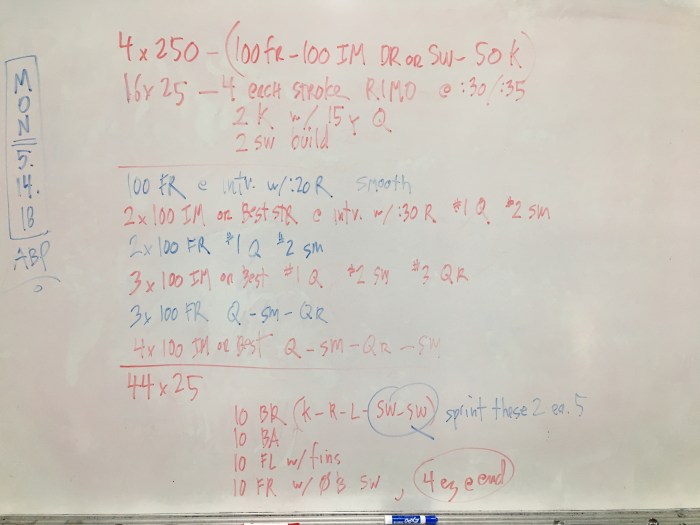 MON 5.14.18
ABP
4 x 250 - (100 FR - 100 IM DR OR SW - 50 K)
16 x 25 - 4 each stroke R.I.M.O @ :30/:35
2 K w/ 15 y Q
2 SW build
100 FR @ intv. w/ :20 R smooth
2 x 100 IM or Best STR @ intv. w/ :30 R #1 Q #2 sm
2 x 100 FR #1 Q #2 sm
3 x 100 IM or Best #1 Q #2 sm #3 QR
3 x 100 FR Q - sm - QR
4 x 100 IM or Best Q - sm - QR - sm
44 x 25
10 BR (K - R - L - SW - SW) sprint these 2 ea. 5
10 BA
10 FL w/ fins
10 FR w/ ØB SW, 4 ez @ end
EXPO